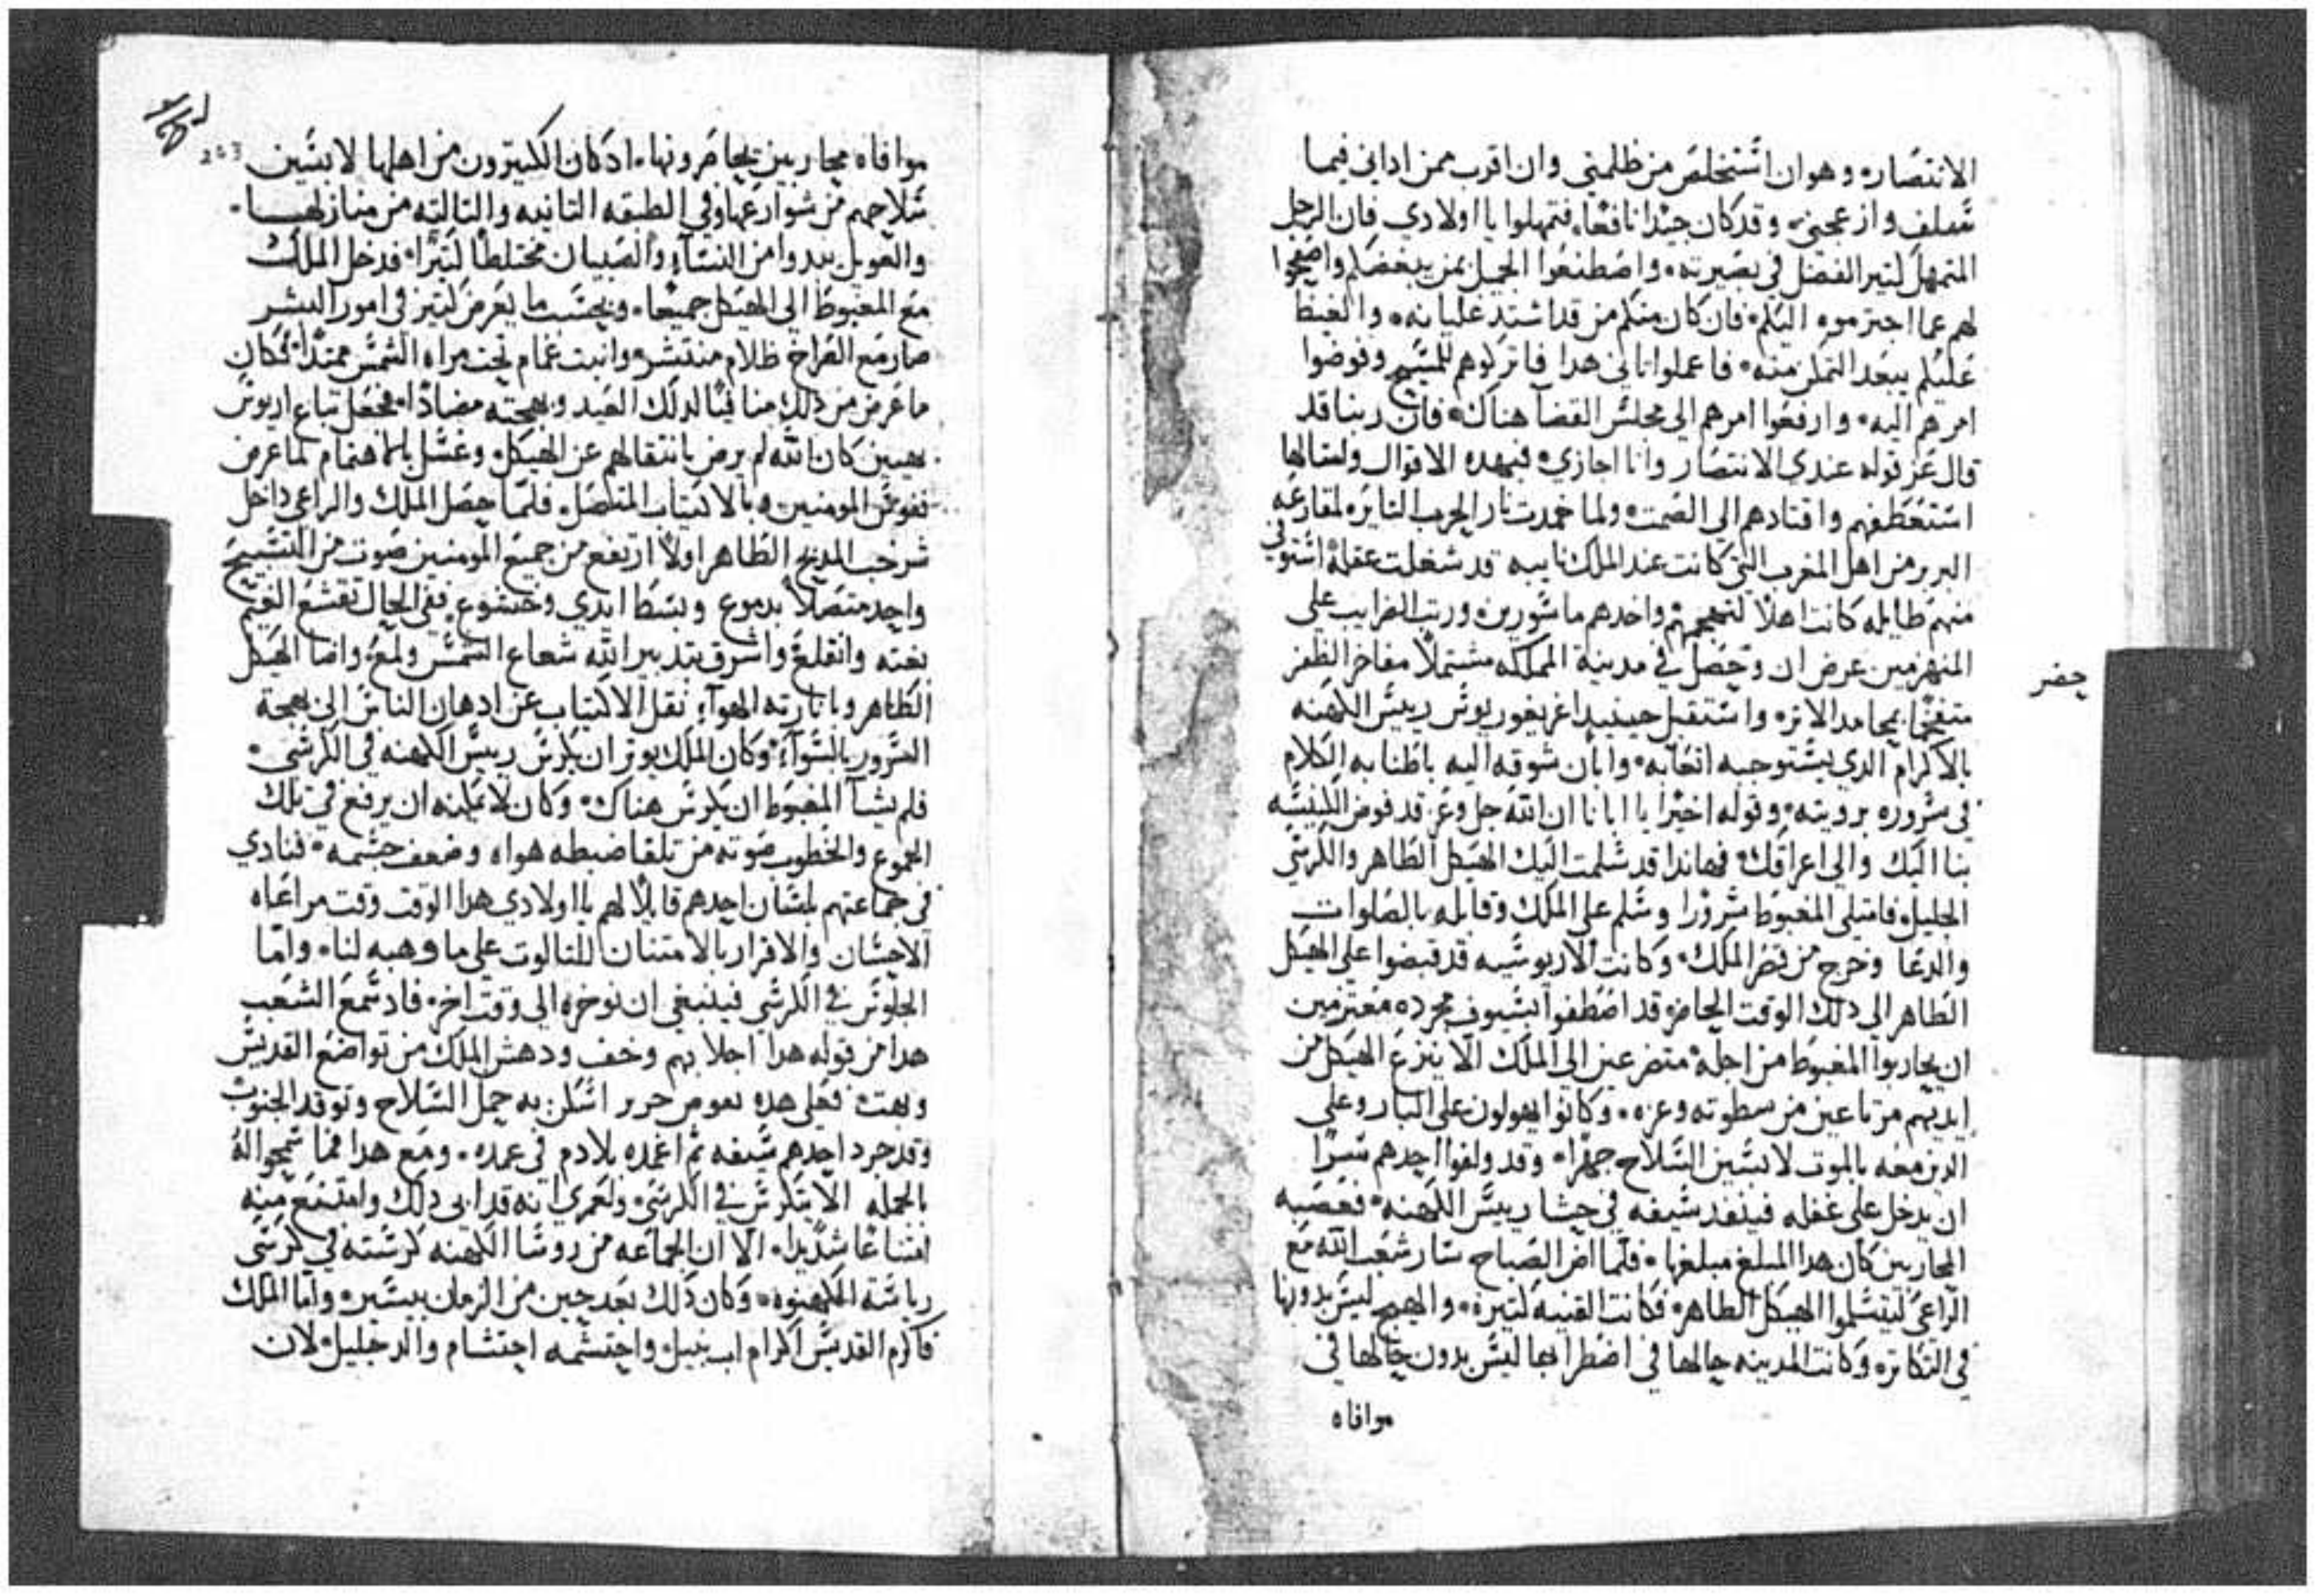 الانتصاره وهو ان استخلص من ظلمني وان اقرب ممن اداني فيما
سلف وازعجني وقد كان جيدا نافعا، فتمهلوا يا اولادي فان الرجل
المتمهل كثير الفضل في بصيرته، واصطنعوا الجميل بمن يبغضكم واصفحوا
لهم عما اجترموه اليكم، فان كان منكم من قد اشتد غليانه والغيظ
عليكم ببعد التمكن منه، فاعملوا ثاني هدا فاتركوهم للمسيح وفوضوا
امرهم اليه، وارفعوا امرهم الى مجلس القضا هناك، فان ربنا قد
قال عز قوله عندي الانتصار وانا اجازي، فبهده الاقوال وامثالها
استعطفهم واقتادهم الى الصمت، ولما خمدت نار الحرب الثايره لمقارعه
البربر من اهل المغرب التي كانت عند الملك نايبه قد شغلت عقله استوفي
منهم طايله كانت اهلا لتهجمهم واخدهم ماسورين ورتب الضرايب على
المنهزمين عرض ان وحصل في مدينة المملكه مشتملا مفاخر الظفر
حضر
متفخما بمحامد الاثره واستقبل حينيد اغريغوريوس رييس الكهنه
بالاكرام الدي يستوجبه اتعابه، وابان شوقه اليه باطنابه الكلام
في سروره برويته، وقوله اخيرا يا ابانا ان الله جل وعز قد فوض الكنيسه
بنا اليك والى اعراقك، فهاندا قد سلمت اليك الهيكل الطاهر والكرسي
الجليل، فامتلى المغبوط سرورا وسلم على الملك وقابله بالصلوات
والدعا وخرج من قصر الملك، وكانت الاريوسيه قد قبضوا على الهيكل
الطاهر الى دلك الوقت الحاضر، قد اصطفوا بسيوف مجرده معتزمين
ان يحاربوا المغبوط من اجله متضرعين الى الملك الا ينزع الهيكل من
ايديهم مرتاعين من سطوته وعزه، وكانوا يهولون على البار وعلى
الدين معه بالموت لابسين السلاح جهرا، وقد ولفوا احدهم سرا
ان يدخل على غفله فينفد سيفه في حشا رييس الكهنه، فغضبه
المحاربين كان هدا المبلغ مبلغها، فلما اضا الصباح سار شعب الله مع
الراعي ليتسلموا الهيكل الطاهر، فكانت الفتنه كثيره، والهيج ليس بدونها
في التكاثر، وكانت المدينه حالها في اضطرابها ليس بدون حالها في
موافاه
243
موافاه محاربين يحاصرونها، اد كان الكثيرون من اهلها لابسين
سلاحهم من شوارعها وفي الطبقه التانيه والتالته من منازلها،
والعويل يبدوا من النساء والصبيان مختلطا كثيرا، فدخل الملك
مع المغبوط الى الهيكل جميعا، وبحسب ما يعرض كثيرا في امور البشر
صار مع الصراخ ظلام منتشر، وانبت غمام تحت مراه الشمس ممتدا، فكان
ما عرض من ذلك منافيا لدلك العيد وبهجته مضادا، فجعل تباع اريوس
يهيبين كان الله لم يرض بانتقالهم عن الهيكل، وغسل بالاهتمام لما عرض
نفوس المومنين بالاكتياب المتصل، فلما حصل الملك والراعي داخل
شرخب المدبح الطاهر اولا ارتفع من جميع المومنين صوت من التسبيح
واحد متصلا بدموع وبسط ايدي وخشوع، ففي الحال تقشع الغيم
بغته وانقلع واشرق بتدبير الله شعاع الشمس ولمع، واضا الهيكل
الطاهر وبانارته الهوآء نقل الاكتياب عن ادهان الناس الى بهجة
السرور بالسوآء، وكان الملك يوثر ان يكرس رييس الكهنه في الكرسي،
فلم يشا المغبوط ان يكرس هناك، وكان لا يمكنه ان يرفع في تلك
الجموع والخطوب صوته من تلقا ضبطه هواه وضعف جسمه، فنادي
في جماعتهم بلسان احدهم قايلا لهم يا اولادي هدا الوقت وقت مراعاه
الاحسان والاقرار بالامتنان للثالوث على ما وهبه لنا، واما
الجلوس في الكرسي فينبغي ان نوخره الى وقت اخر، فاد سمع الشعب
هدا من قوله هدا اجلابهم وخف ودهش الملك من تواضع القديس
وبهت، فعلى هده حرر اسكن به حمل السلاح وتوقد الجنوب
وقد جرد احدهم سيفه تم اغمده بلا دم في غمده، ومع هدا فما سمحوا له
بالجمله الا يتكرس في الكرسي، ولعمري انه قد ابى دلك وامتنع منه
امتناعا شديدا، الا ان الجماعه من روسا الكهنه كرسته في كرسي
رياسة الكهنوه، وكان دلك بعد حين من الزمان يسير، واما الملك
فاكرم القديس اكرام اب نبيل، واحتشمه احتشام والد جليل، لان